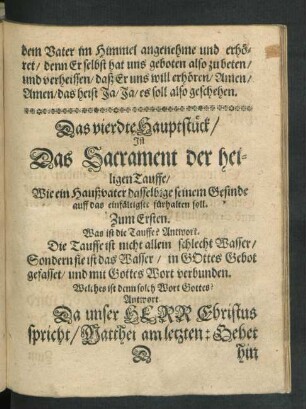 dem Vater im Himmel angenehme und erhö-
ret / denn Er selbst hat uns geboten also zu beten /
und verheissen / daß Er uns will erhören / Amen /
Amen / das heist Ja / Ja / es soll also geschehen.
Das vierdte Hauptstück /
Ist
Das Sacrament der hei-
ligen Tauffe /
Wie ein Haußvater dasselbige seinem Gesinde
auff das einfältigste fürhalten soll.
Zum Ersten.
Was ist die Tauffe? Antwort.
Die Tauffe ist nicht allein schlecht Wasser /
Sondern sie ist das Wasser / in GOttes Gebot
gefasset / und mit Gottes Wort verbunden.
Welches ist denn solch Wort Gottes?
Antwort
Da unser HERR Christus
spricht / Matthei am letzten: Gehet
D
hin